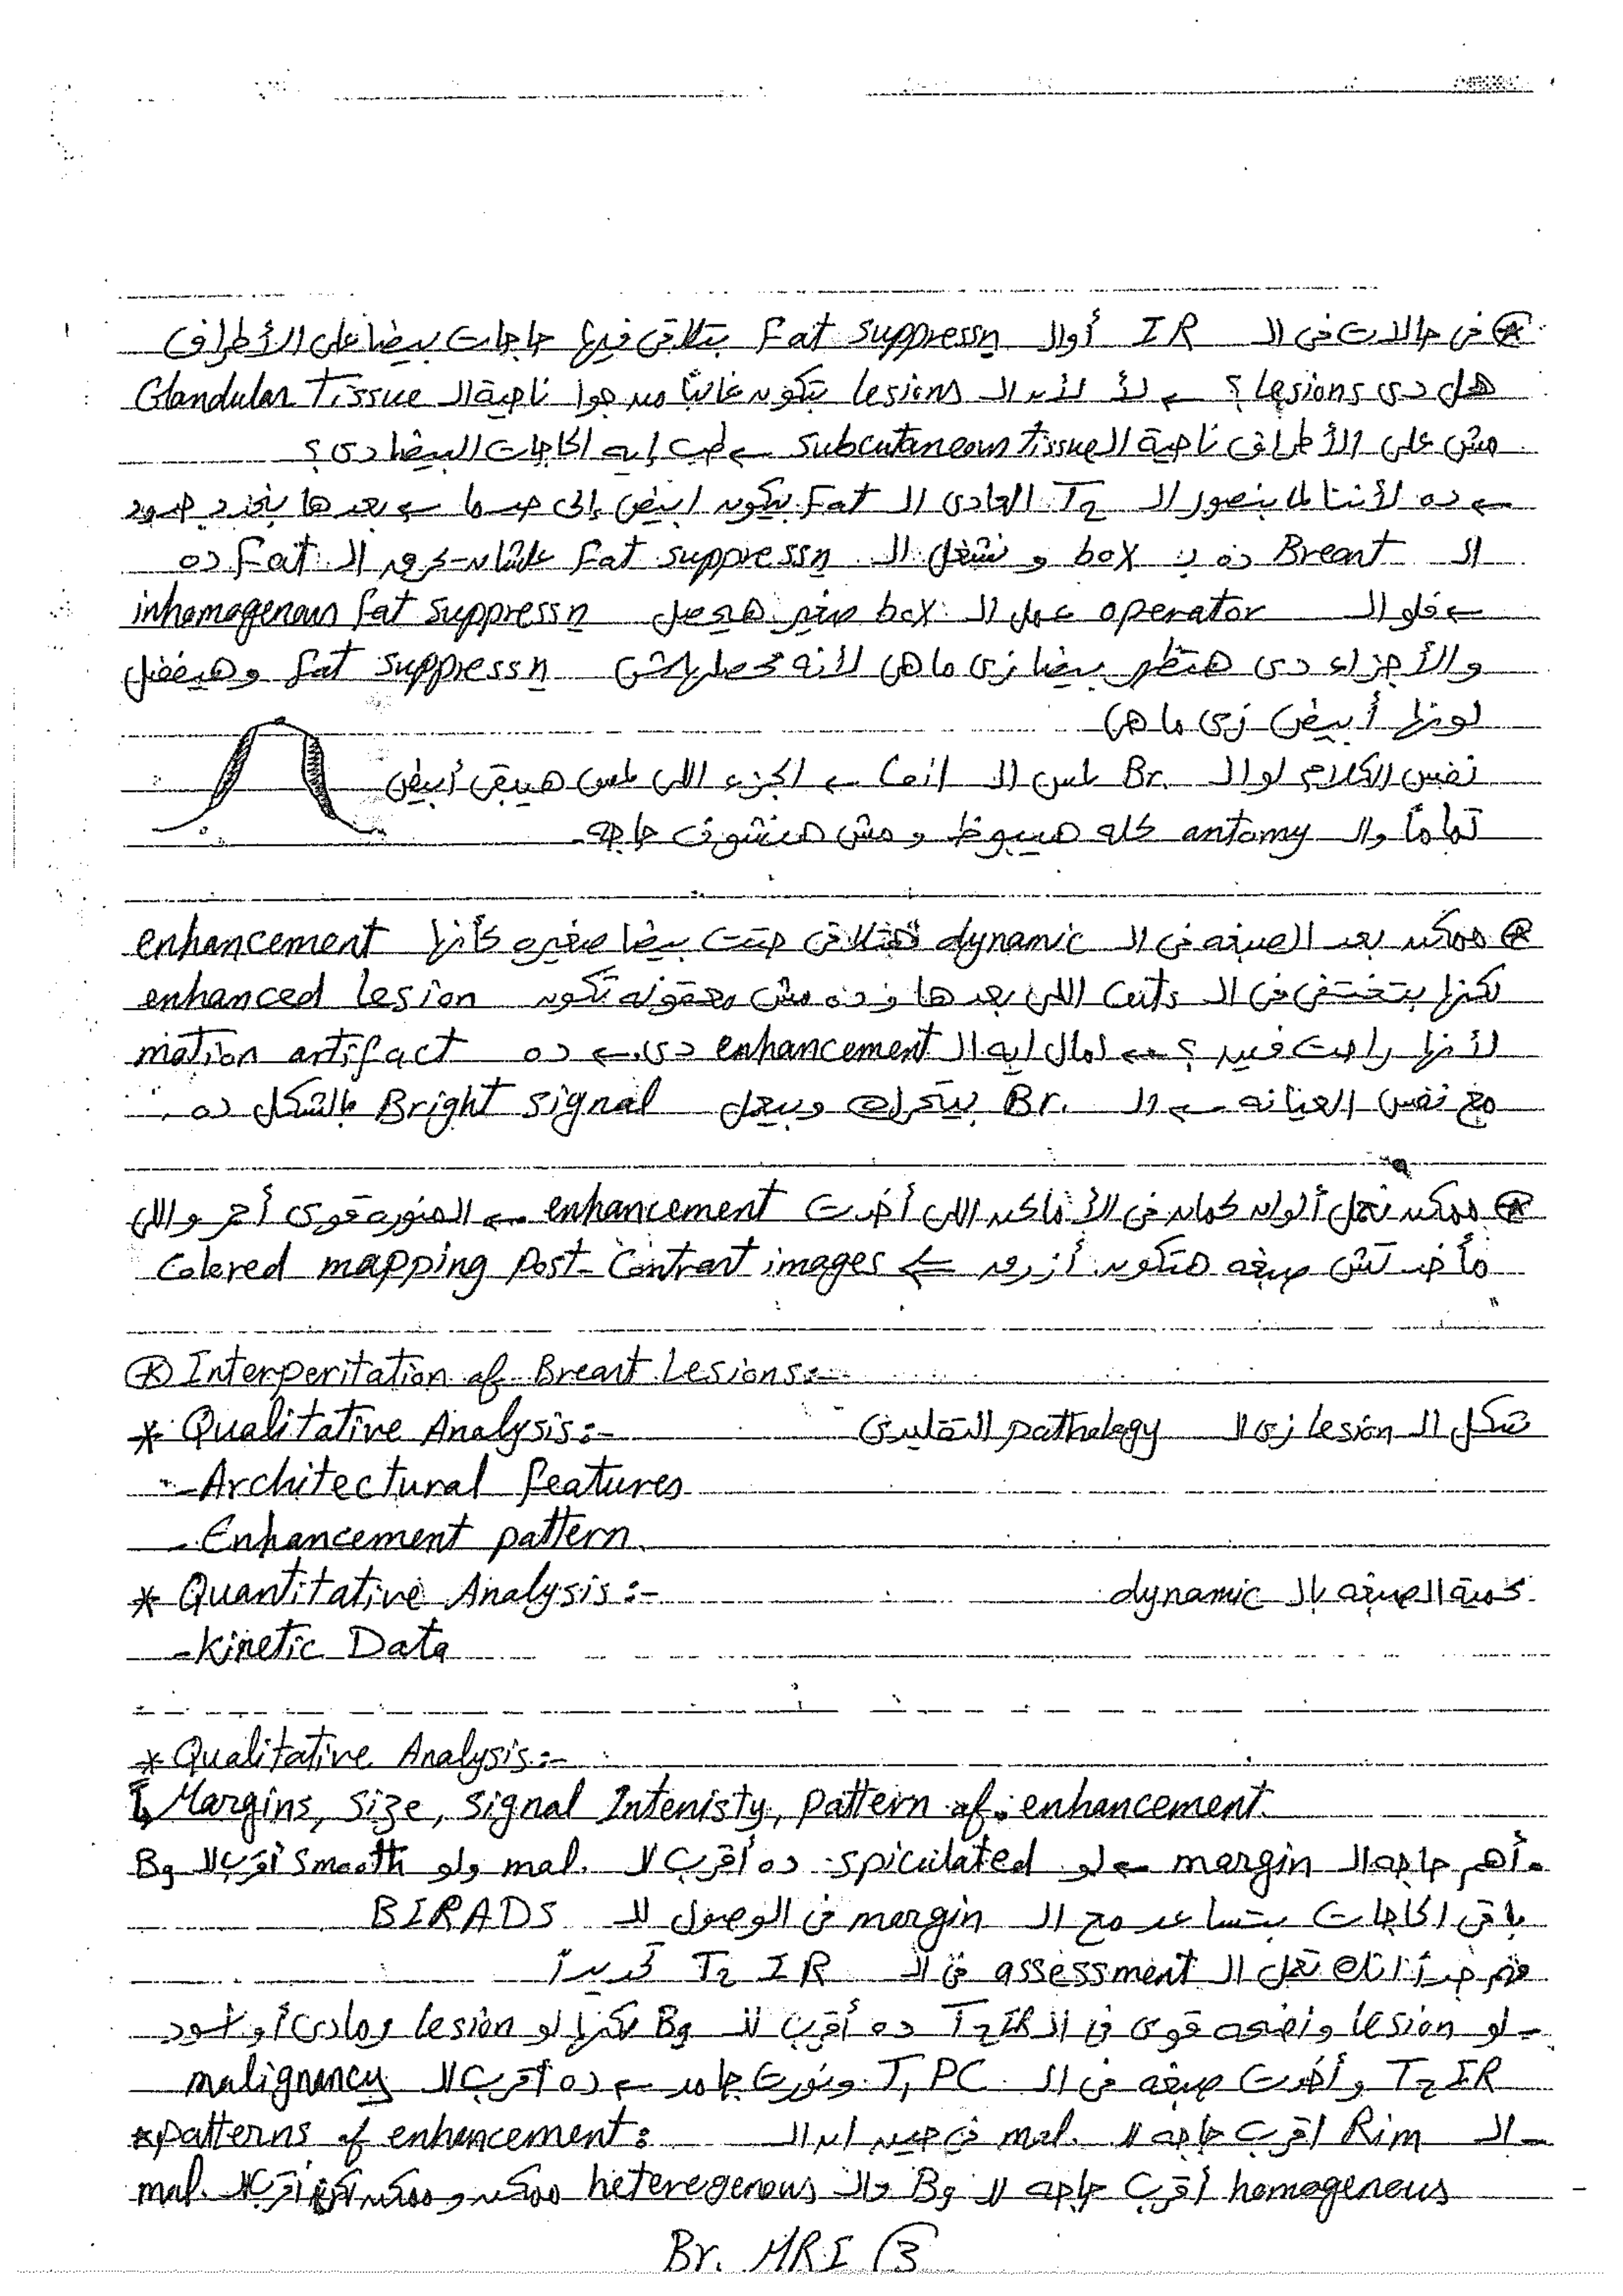 ⊛ في حالات في الـ IR أو الـ Fat suppressn بتلاقي فيها حاجات بيضا على الأطراف
هل دي lesions ؟ ← لأ لأن الـ lesions بتكون غالباً من جوا ناحية الـ Glandular Tissue
مش على الأطراف ناحية الـ subcutaneous tissue ← طب إيه الحاجات البيضا دي ؟
← ده لأننا لما بنصور الـ T2 العادي الـ Fat بيكون ابيض إلى حد ما ← بعدها بنحدد حدود
الـ Breast ده بـ box و نشغل الـ Fat suppressn علشان نحرق الـ Fat ده
← فلو الـ operator عمل الـ box صغير هيحصل inhomogenous fat suppressn
والأجزاء دي هتظهر بيضا زي ما هي لأنه محصلهاش fat suppressn وهيفضل
لونها أبيض زي ما هي
نفس الكلام لو الـ Br. لمس الـ ← الجزء اللي لمس هيبقى أبيض
تماماً والـ antomy كله هيبوظ ومش هنشوف حاجه
⊛ ممكن بعد الصبغه في الـ dynamic تلاقي حتت بيضا صغيره كأنها enhancement
لكنها بتختفي في الـ Cuts اللي بعدها وده مش معقوله تكون enhanced lesion
لأنها راحت فين ؟ ← امال ايه الـ enhancement دي ← ده motion artifact
مع نفس العيانه ← الـ Br. بيتحرك وبيعمل Bright signal بالشكل ده
⊛ ممكن نعمل ألوان كمان في الأماكن اللي أخدت enhancement ← المنوره قوي أحمر واللي
مأخدتش صبغه هتكون أزرق ⇐ Colored mapping Post-Contrast images
⊛ Interperitation of Breast Lesions:-
* Qualitative Analysis:- شكل الـ lesion زي الـ pathology التقليدي
- Architectural features
- Enhancement pattern
* Quantitative Analysis:- كمية الصبغه بالـ dynamic
- Kinetic Data
* Qualitative Analysis:-
↳ Margins, Size, Signal Intenisty, Pattern of enhancement
. أهم حاجه الـ margin ← لو spiculated ده أقرب لـ mal. ولو Smooth أقرب لـ Bg
باقي الحاجات بتساعد مع الـ margin في الوصول للـ BIRADS
مهم جداً انك تعمل الـ assessment في الـ T2 IR تحديداً
- لو lesion واضحه قوي في الـ T2 IR ده أقرب للـ Bg لكنها لو lesion رمادي أو اسود
T2 IR وأخدت صبغه في الـ T1 PC ونورت جامد ← ده أقرب الـ malignancy
*patterns of enhancement: - الـ Rim أقرب حاجه لـ mal. في حين ان الـ
homogenous أقرب حاجه لـ Bg والـ heteregenous ممكن وممكن أقرب لـ mal.
Br. MRI 3